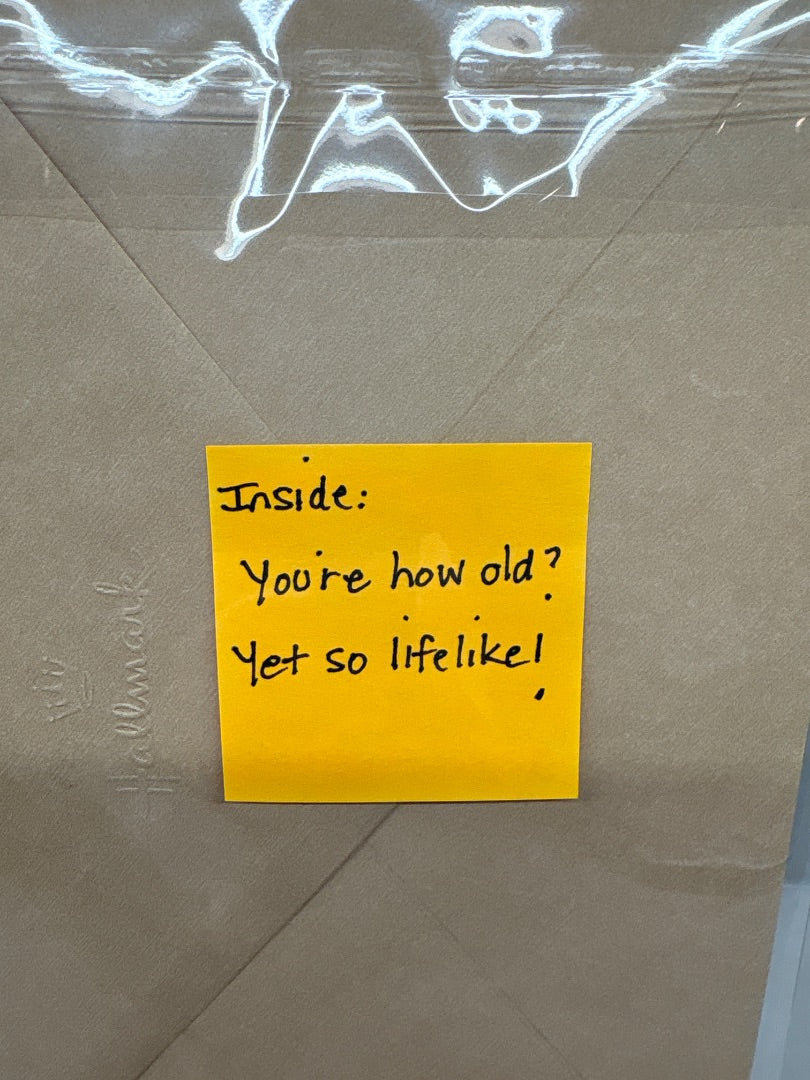 Inside:
You're how old?
Yet so lifelike!
Hallmark